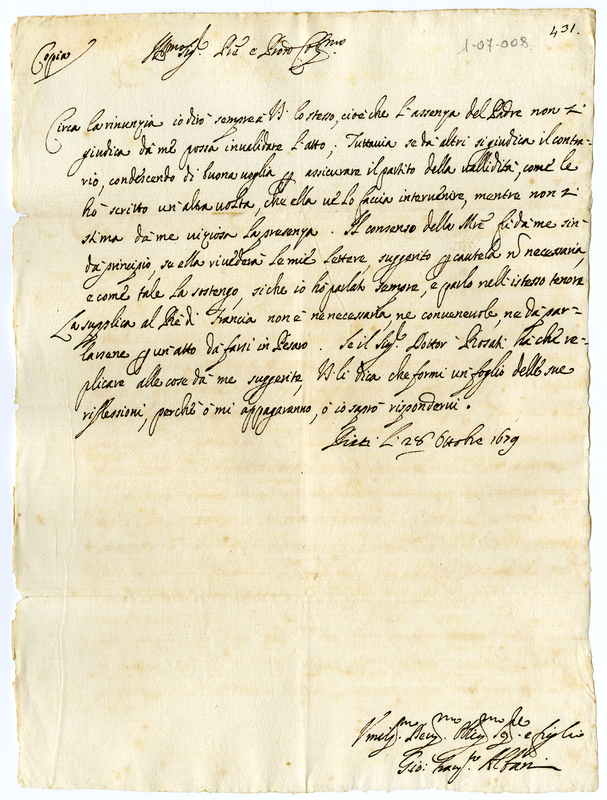 431.
1-07-008
Copia
Ill.mo Sig.r Prē e Prōn Col.mo
Circa la rinunzia io dirò sempre à V.S. lo stesso, cioè che l'assenza del Padre non si
giudica dà me possa invalidare l'atto; Tuttavia se dà altri si giudica il contra=
rio, condescendo di buona voglia p assicurare il partito della vallidità, come le
hò scritto un'altra volta, che ella vè lo facia intervenire, mentre non si
stima dà me viziosa la presenza. Il consenso della Mrē fù dà me sin
dà principio, se ella rivederà le mie lettere, suggerito p cautela nō necessaria,
e come tale la sostengo, siche io hò parlato sempre, e parlo nell'istesso tenore
La supplica al Rè di Francia non è ne necessaria, ne conveneuole, ne dà par=
larsene p un'atto dà farsi in Pesaro. Se il Sig.r Dottor Rosati hà che re=
plicare alle cose dà me suggerite, V.S. li dica che formi un foglio delle sue
riflessioni, perche ò mi appagaranno, ò io saprò rispondervi.
li 28 Ottobre 1679
Umiliss.mo Devot.mo Oblig.mo Sre e figlio
Gio: Franc.co Albani